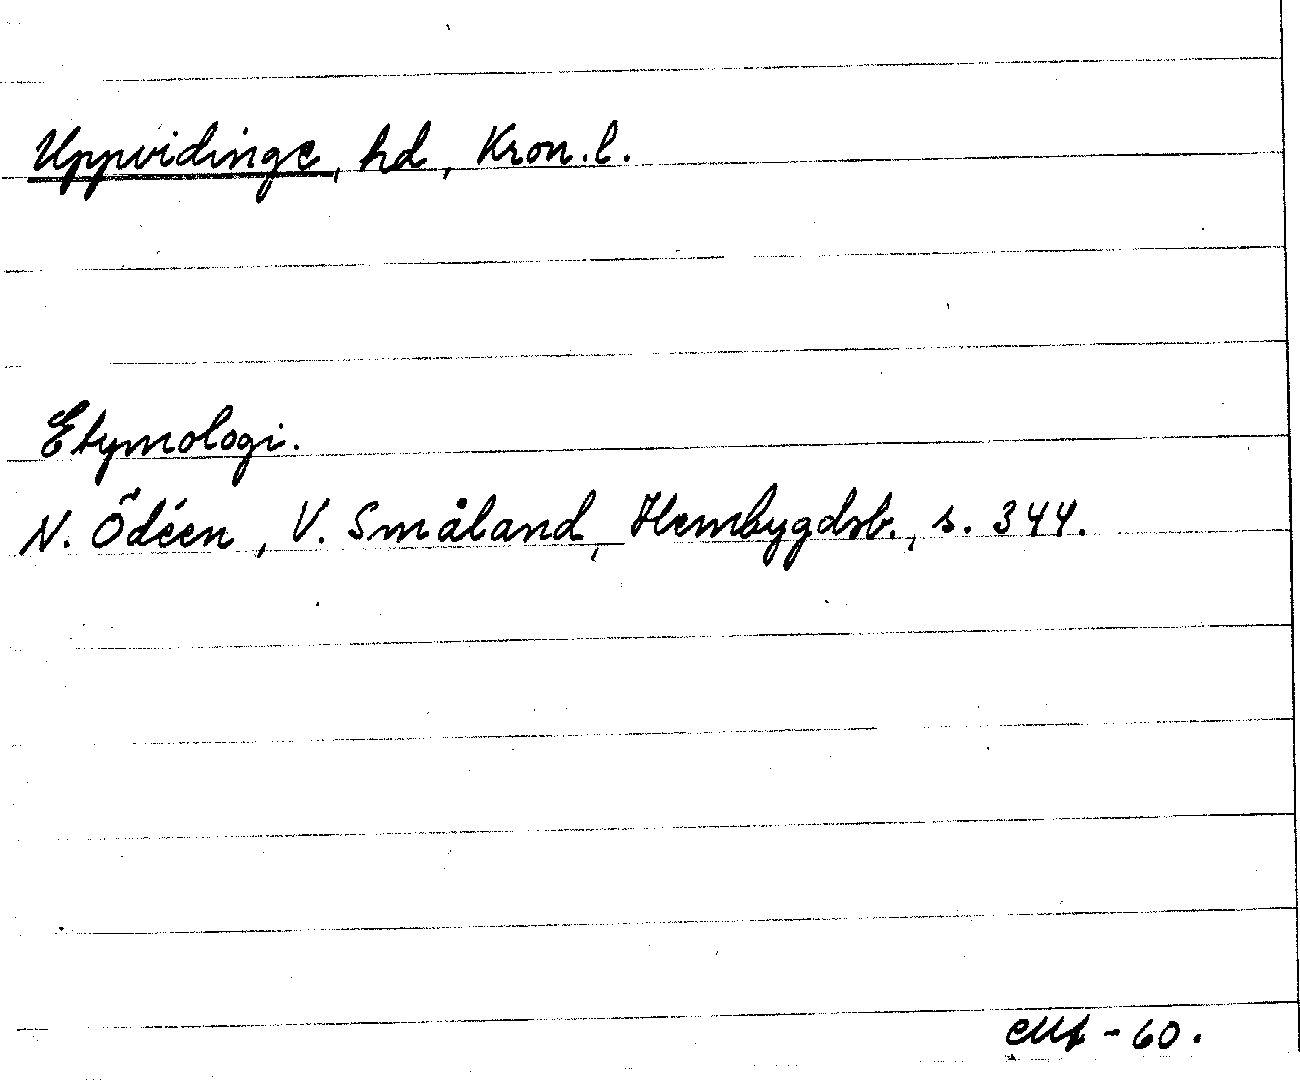 Uppvidinge, hd, Kron.l.
Etymologi.
N. Ödéen, V. Småland, Hembygdsb., s. 344.
-60.